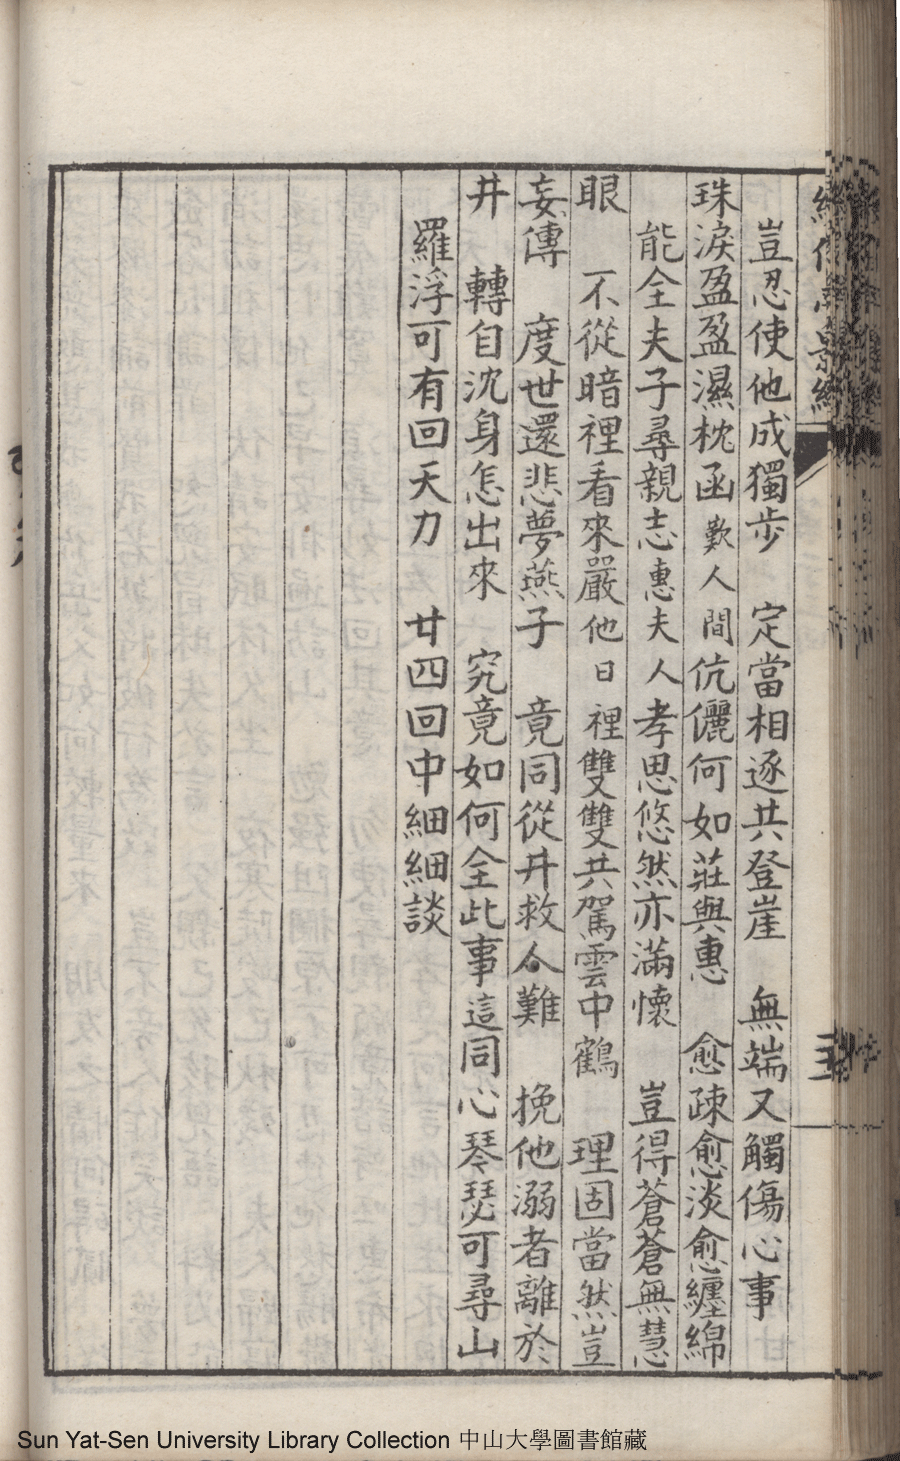 豈忍使他成獨步　定當相逐共登崖　無端又觸傷心事
珠淚盈盈濕枕函　歎人間伉儷何如莊與惠　愈疎愈淡愈纏綿
能全夫子尋親志　惠夫人孝思悠然亦滿懷　豈得蒼蒼無慧
眼　不從暗裡看來嚴　他日裡雙雙共駕雲中鶴　理固當然豈
妄傳　度世還悲夢燕子　竟同從井救人難　挽他溺者離於
井　轉自沈身怎出來　究竟如何全此事　這同心琴瑟可尋山
羅浮可有回天力　廿四回中細細談
Sun Yat-Sen University Library Collection 中山大學圖書館藏